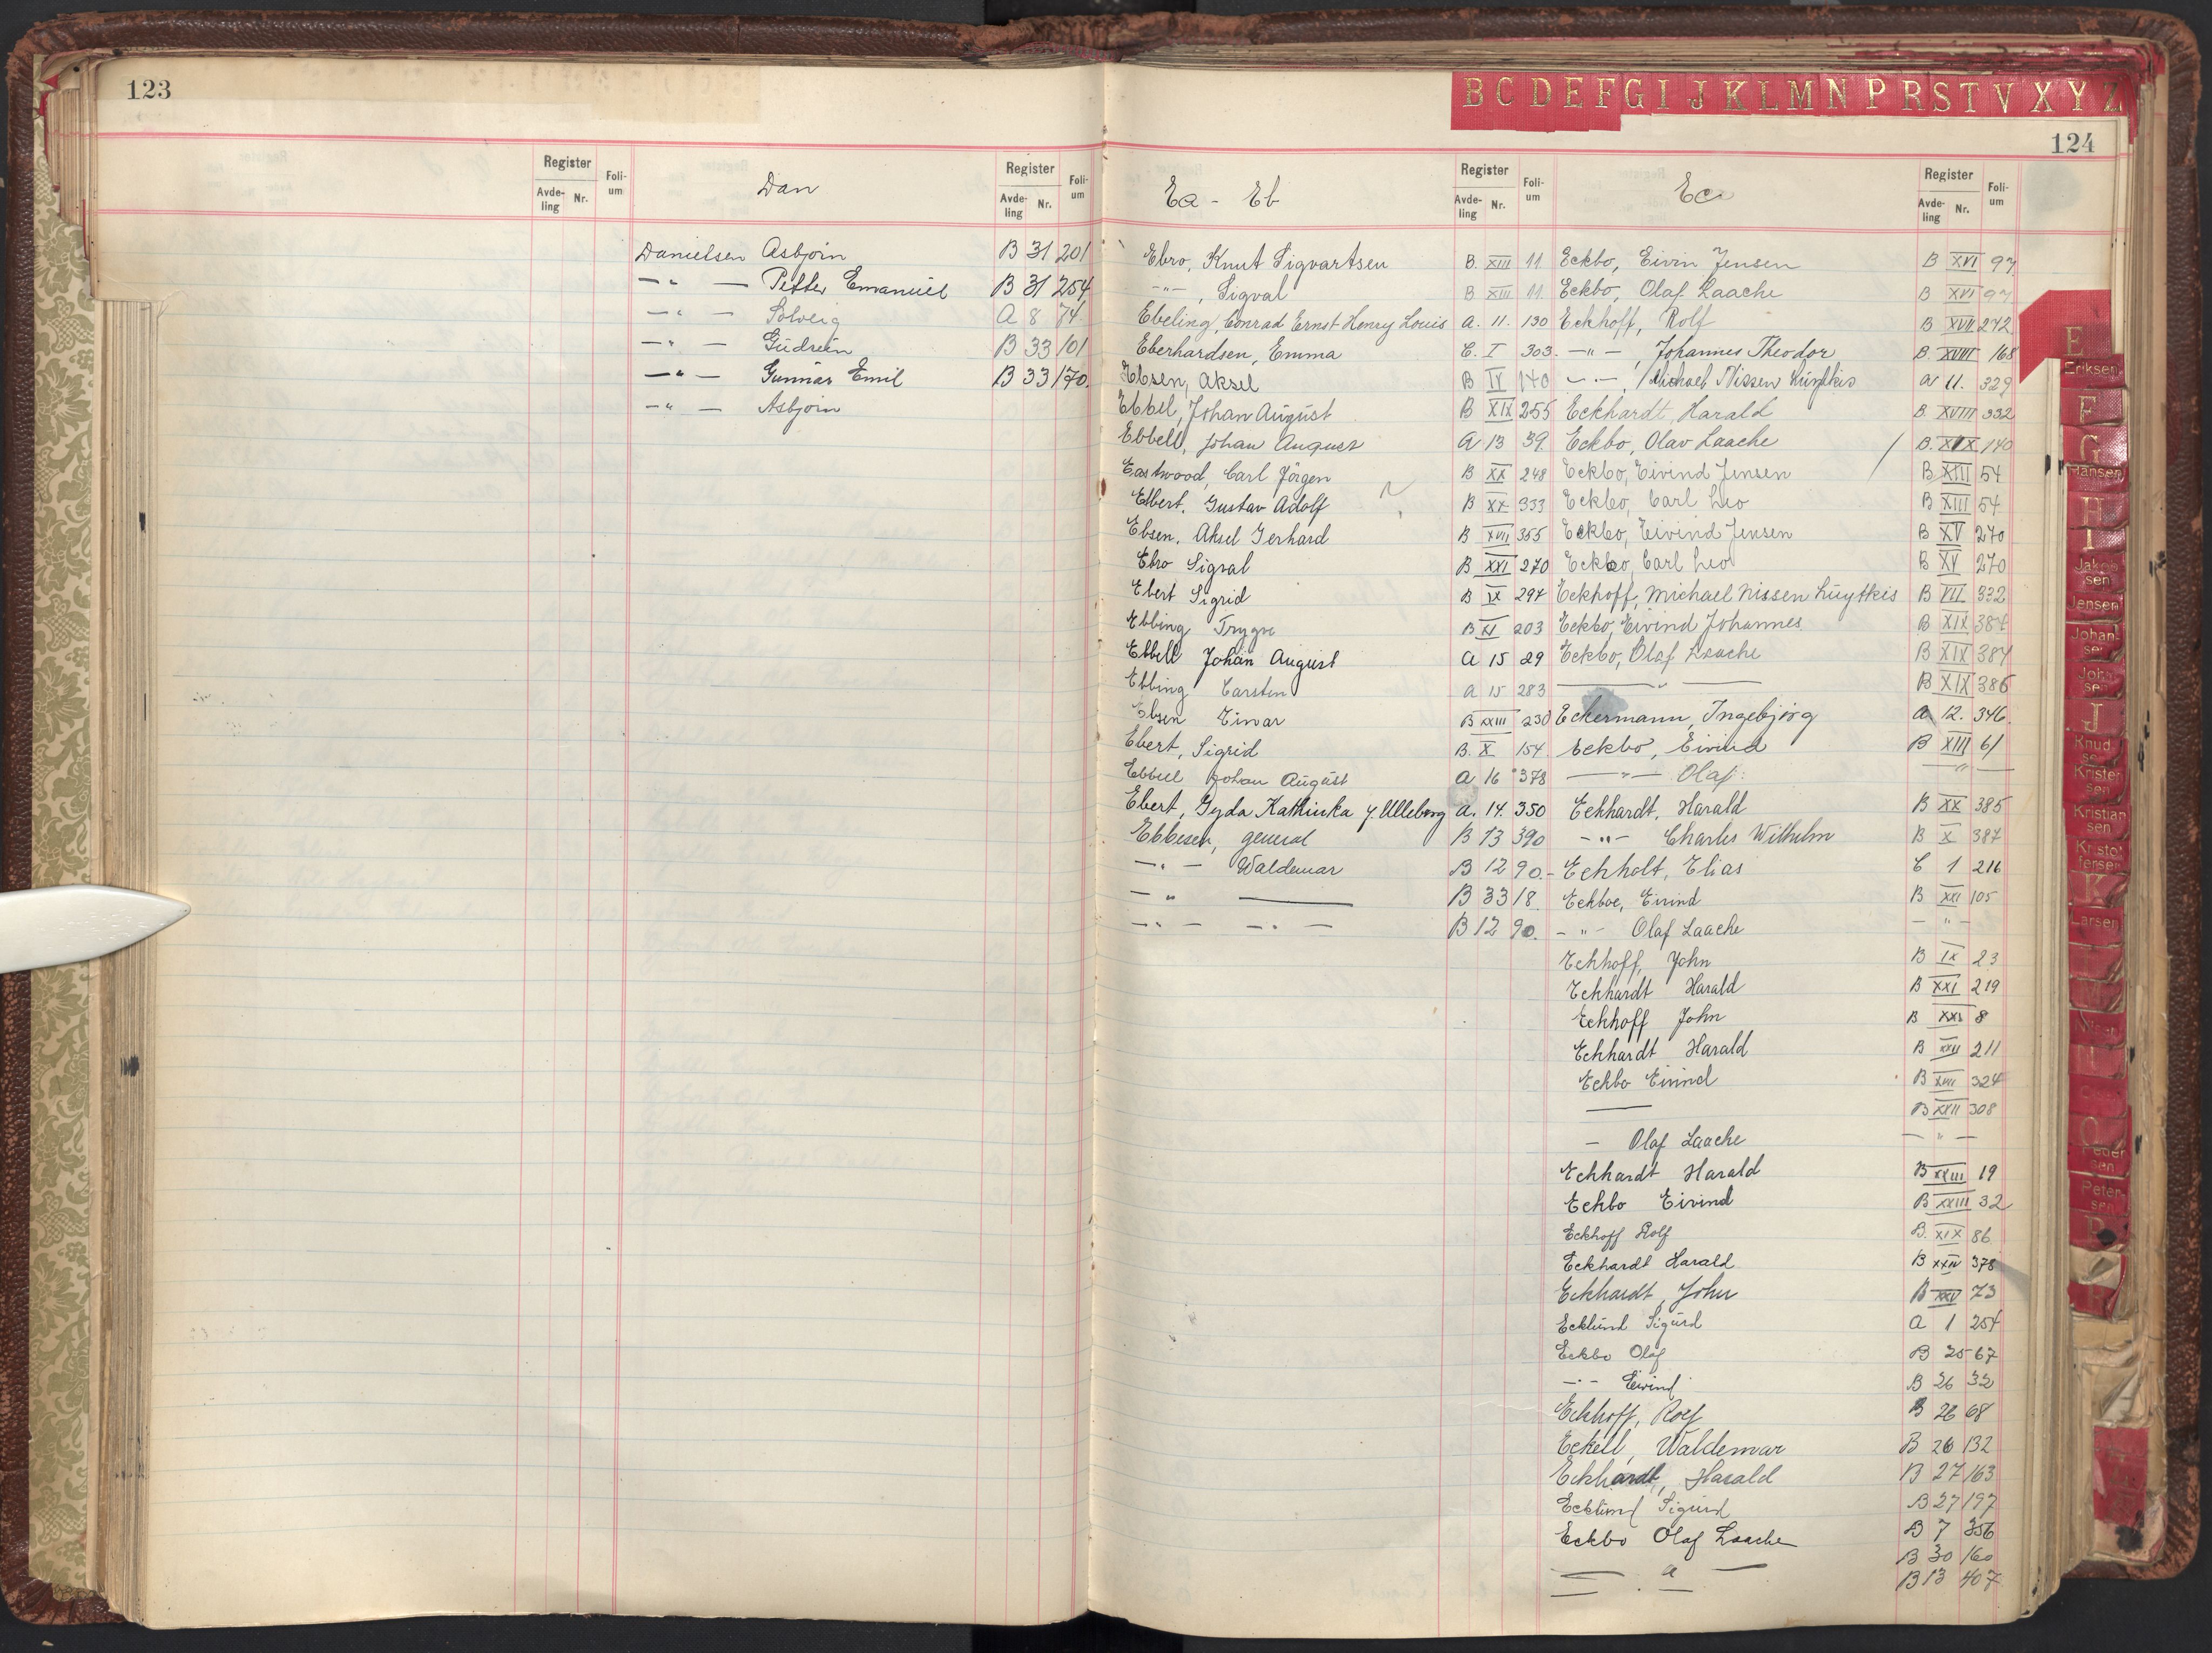 123
Register
Avde-
ling
Nr.
Foli-
um
Dan
Register
Avde-
ling
Nr.
Foli-
um
Danielsen Asbjørn B 31 201
—"— Petter Emanuel B 31 254
—"— Solveig A 8 74
—"— Gudrun B 33 101
—"— Gunnar Emil B 33 170.
—"— Asbjørn
B C D E F G I J K L M N P R S T V X Y Z
124
Ea - Eb
Register
Avde-
ling
Nr.
Foli-
um
Ebro, Knut Sigvartsen B. XIII 11
—"—, Sigval B XIII 11.
Ebeling, Conrad Ernst Henry Louis A. 11. 130
Eberhardsen, Emma C. I 303.
Ebsen, Aksel B IV 140
Ebbel, Johan August B XIX 255
Ebbell, Johan August A 13 39.
Eastwood, Carl Jörgen B XX 248
Elbert, Gustav Adolf B XX 333
Ebsen, Aksel Gerhard B XVII 355
Ebro Sigval B XXI 270
Ebert Sigrid B IX 297
Ebbing Trygve B XI 203
Ebbell Johan August A 15 29
Ebbing Carsten A 15 283
Ebsen Einar B XXIII 230
Ebert, Sigrid B. X 154
Ebbell Johan August A 16 378
Ebert, Gyda Kathinka f. Ulleberg A. 14. 350
Ebbesen, general B 13 390
—"— Waldemar B 12 90.
—"— —— B 33 18.
—"— —"— B 12 90.
Ec
Register
Avde-
ling
Nr.
Foli-
um
Eckbo, Eivin Jensen B XVI 97
Eckbo, Olaf Laache B XVI 97
Eckhoff, Rolf B XVII 242
—"—, Johannes Theodor B. XVIII 168
—"—, Michael Nissen Luytkis A 11. 329
Eckhardt, Harald B. XVIII 332
Eckbo, Olav Laache B. XIX 140
Eckbo, Eivind Jensen B XIII 54
Eckbo, Carl Leo B XIII 54
Eckbo, Eivind Jensen B XV 270
Eckbo, Carl Leo B XV 270
Eckhoff, Michael Nissen Luytkis B VII 332
Eckbo, Eivind Johannes B XIX 384
Eckbo, Olaf Laache B XIX 384
——"—— B XIX 386
Eckermann, Ingebjørg A 12. 346.
Eckbo, Eivind B XIII 61
—"— Olaf. —"—
Eckhardt, Harald B XX 385
—"— Charles Wilhelm B X 387
Eckholt, Elias C 1 216
Eckboe, Eivind B XXI 105
—"— Olaf Laache —"—
Eckhoff, John B IX 23
Eckhardt Harald B XXI 219
Eckhoff John B XXI 8
Eckhardt Harald B XXII 211
Eckbo Eivind B XVIII 324
—— B XXII 308
— Olaf Laache —"—
Eckhardt Harald B XXIII 19
Eckbo Eivind B XXIII 32
Eckhoff Rolf B. XIX 86
Eckhardt Harald B XXIV 378
Eckhardt, John B XXV 73
Ecklund Sigurd A 1 254
Eckbo Olaf B 25 67
—"— Eivind B 26 32
Eckhoff, Rolf B 26 68
Eckell, Waldemar B 26 132
Eckhardt, Harald B 27 163
Ecklund Sigurd B 27 197
Eckbo Olaf Laache B 7 356
——"—— B 30 160
——"—— B 13 407
E
Eriksen
F
G
Hansen
H
I
Jakob-
sen
Jensen
Johan-
sen
John-
sen
J
Knud-
sen
Krister-
sen
Kristian-
sen
Kristof-
fersen
K
Larsen
Peder-
sen
Peter-
sen
P